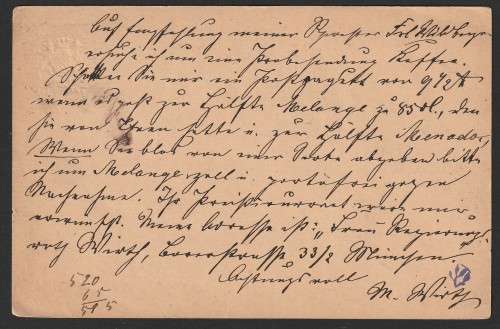 Auf Empfehlung meiner Schwester Frl. Wildberger
ersuche ich um eine Probesendung Kaffee.
Schicken Sie mir ein Postpaquett von 9 1/2 ℔
wenn es geht zur Hälfte Melange zu 85 , den
sie von Ihnen hatte u. zur Hälfte Menador,
Wenn Sie blos von einer Sorte abgeben bitte
ich um Melange zoll u. portofrei gegen
Nachnahme. Ihr Preiscourant wäre mir
erwünscht. Meine Adresse ist: "Frau Regierungs-
rath Wirth, 33/2 München.
Achtungsvoll
M. Wirth
520
65
595